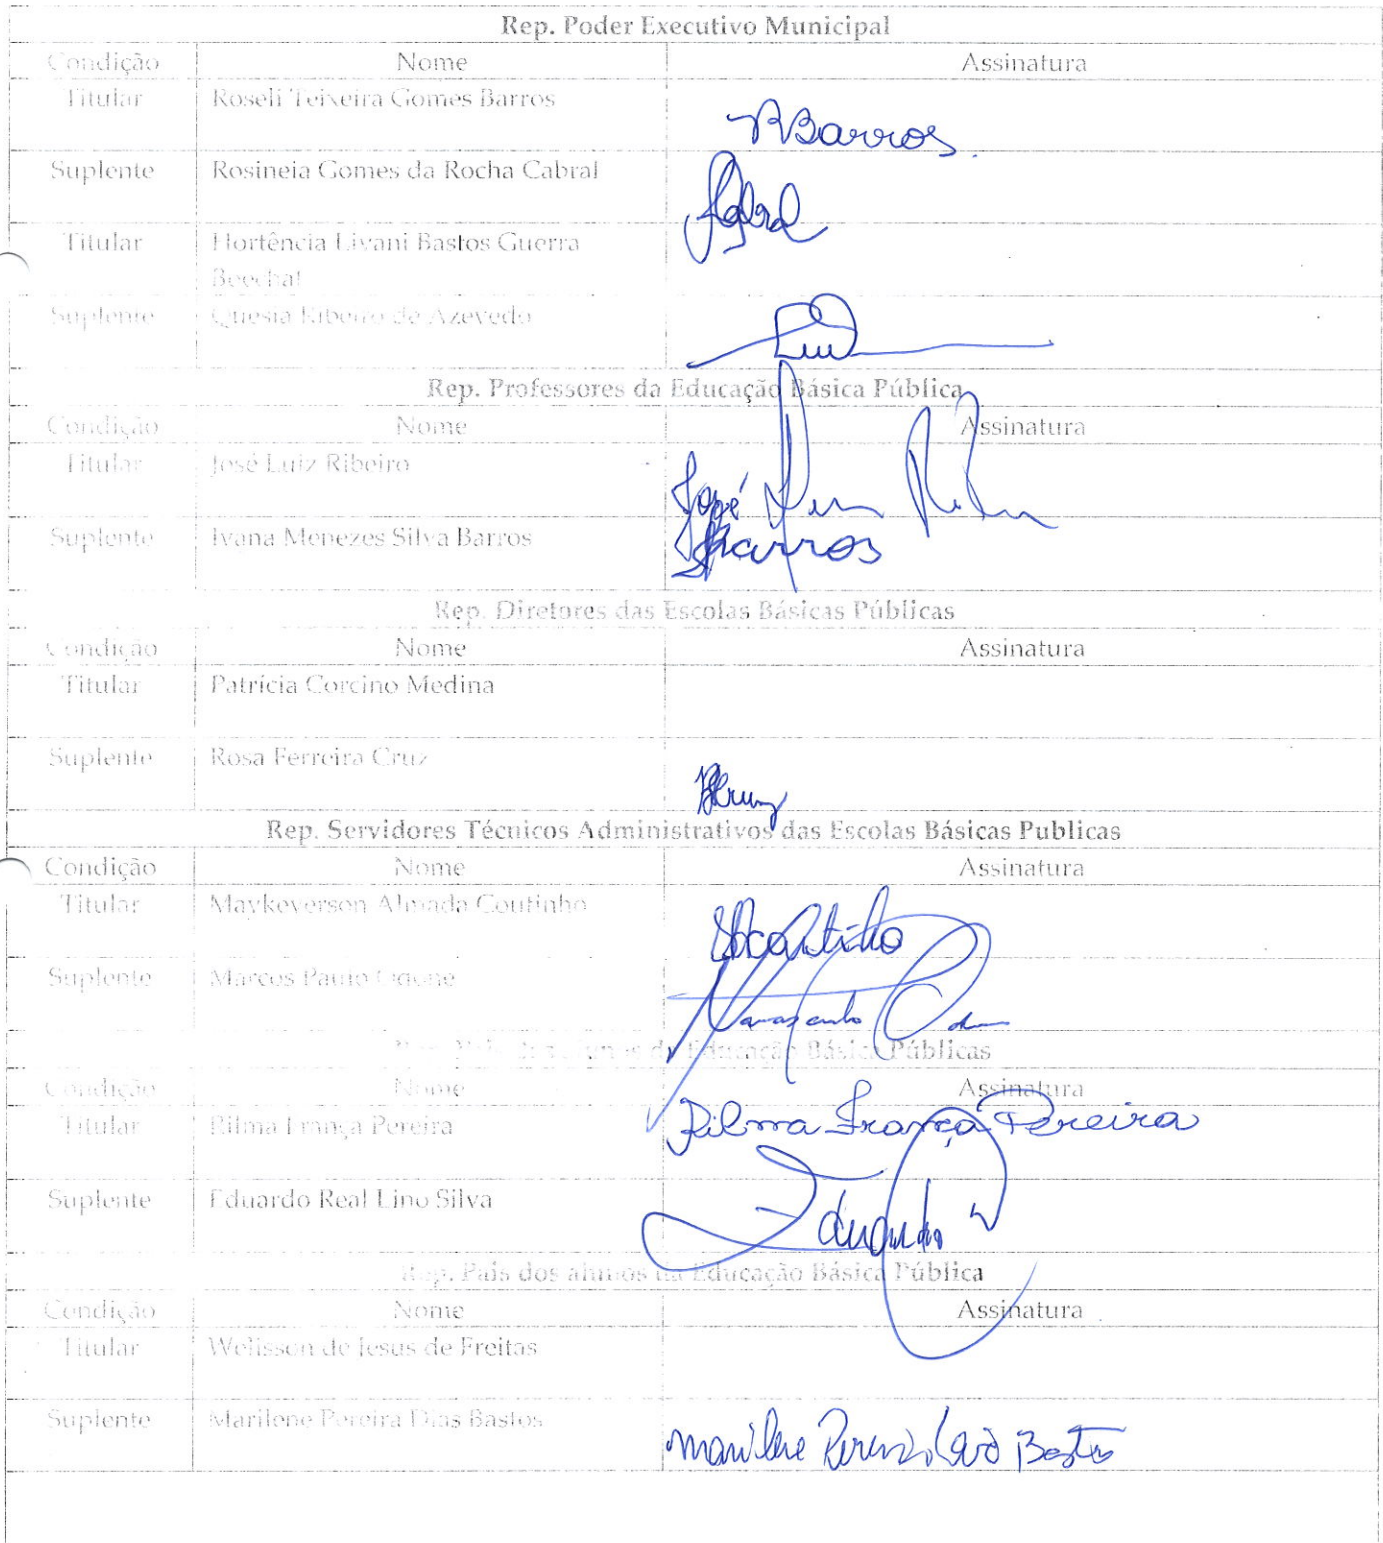 Rep. Poder Executivo Municipal
Condição Nome Assinatura
Titular Roseli Teixeira Gomes Barros
RBarros.
Suplente Rosineia Gomes da Rocha Cabral
Titular Hortência Livani Bastos Guerra
Beechat
Suplente Quesia Ribeiro de Azevedo
Rep. Professores da Educação Básica Pública
Condição Nome Assinatura
Titular José Luiz Ribeiro
José
Suplente Ivana Menezes Silva Barros
Barros
Rep. Diretores das Escolas Básicas Públicas
Condição Nome Assinatura
Titular Patrícia Corcino Medina
Suplente Rosa Ferreira Cruz
Rep. Servidores Técnicos Administrativos das Escolas Básicas Publicas
Condição Nome Assinatura
Titular Maykeverson Almada Coutinho
Suplente Marcos Paulo
da Educação Básica Públicas
Condição Nome Assinatura
Titular Rilma França Pereira
Rilma França Pereira
Suplente Eduardo Real Lino Silva
Eduardo
Rep. Pais dos alunos da Educação Básica Pública
Condição Nome Assinatura
Titular Welisson de Jesus de Freitas
Suplente Marilene Pereira Dias Bastos